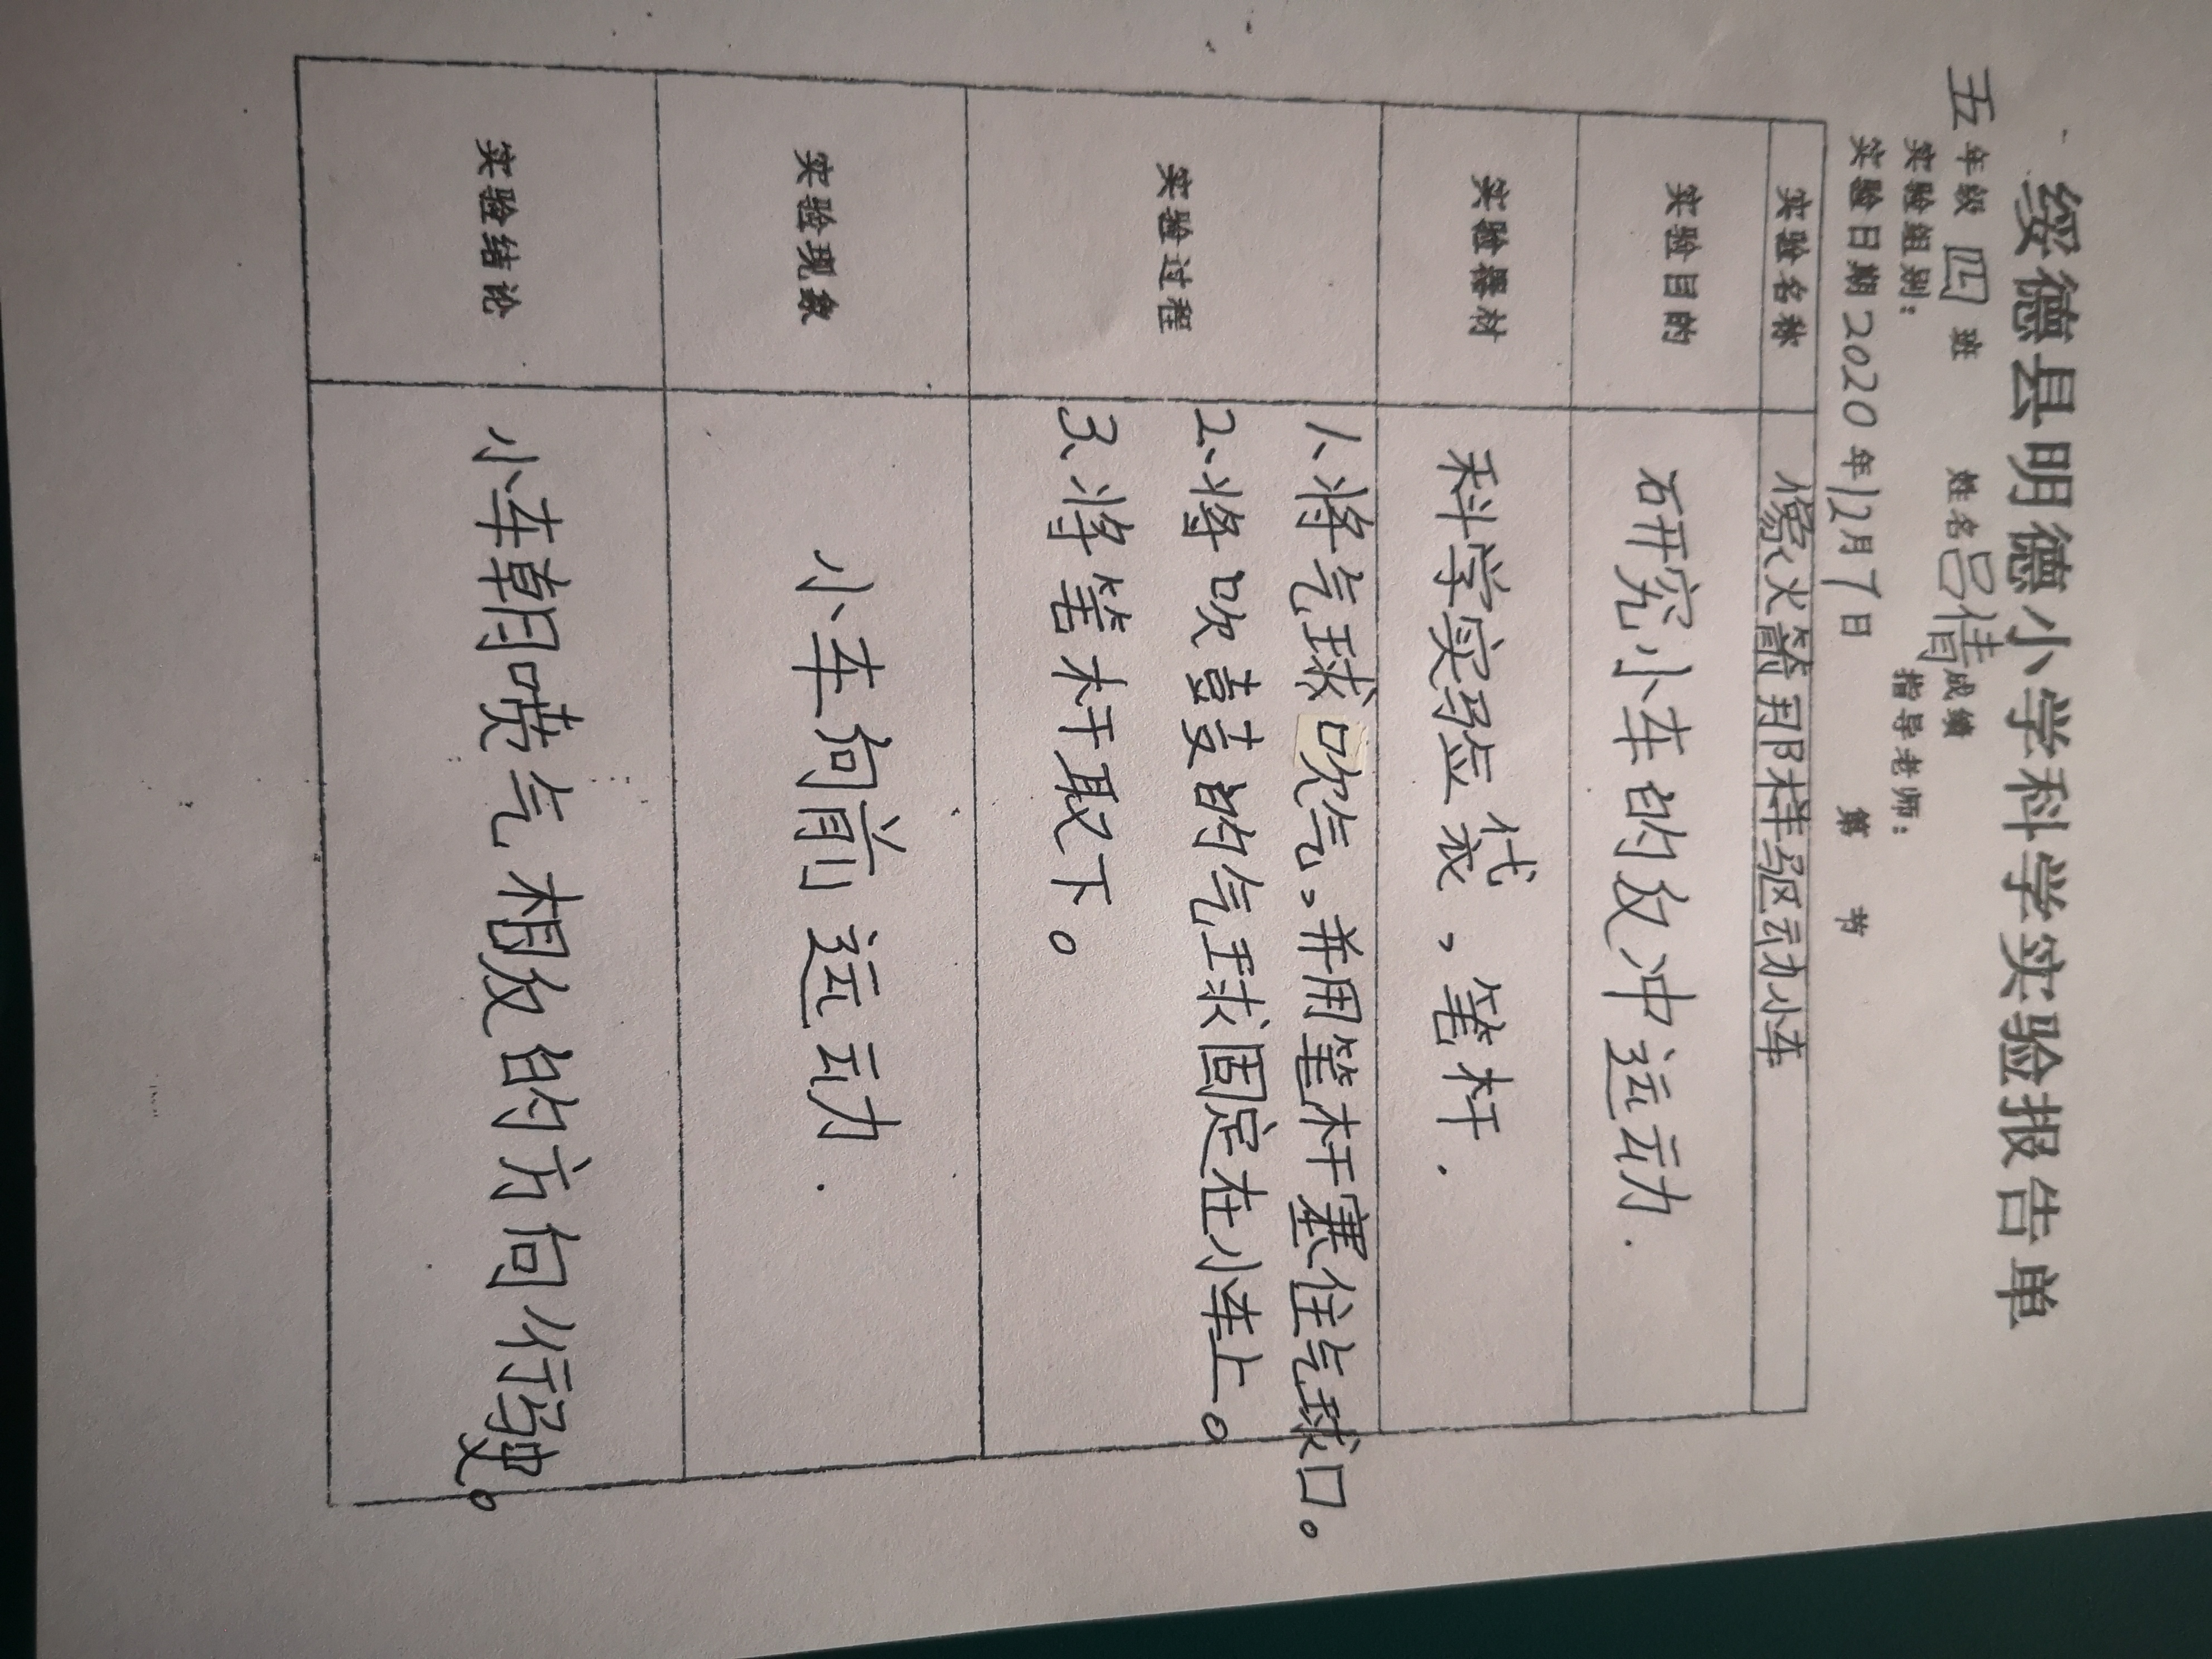 绥德县明德小学科学实验报告单
五年级 四 班 姓名吕倩成绩
实验组别: 指导老师:
实验日期2020年12月7日 第 节
实验名称 像火箭那样驱动小车
实验目的 研究小车的反冲运动.
实验器材 科学实验袋,笔杆.
实验过程 1、将气球吹气,并用笔杆塞住气球口。
2、将吹鼓的气球固定在小车上。
3、将笔杆取下。
实验现象 小车向前运动.
实验结论 小车朝喷气相反的方向行驶。